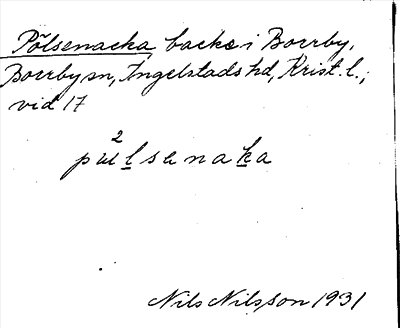 Pölsenacka backe i Borrby,
Borrby sn, Ingelstads hd, Krist. l.,
vid 17
2
pɯlsenaka
Nils Nilsson 1931